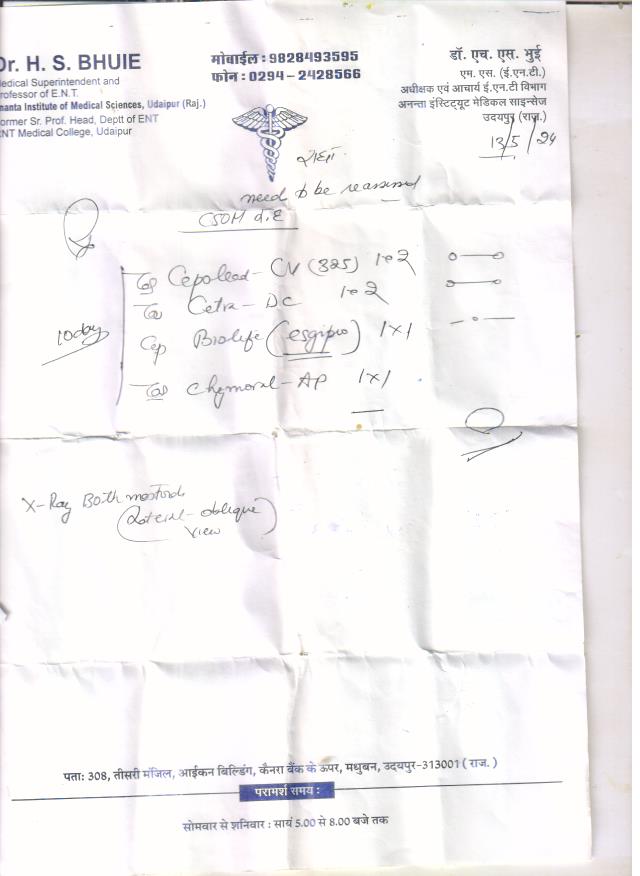 Dr. H. S. BHUIE
Medical Superintendent and
Professor of E.N.T.
Ananta Institute of Medical Sciences, Udaipur (Raj.)
Former Sr. Prof. Head, Deptt of ENT
ENT Medical College, Udaipur
मोबाईल : 9828493595
फोन : 0294-2428566
डॉ. एच. एस. भुई
एम. एस. (ई.एन.टी.)
अधीक्षक एवं आचार्य ई.एन.टी विभाग
अनन्ता इंस्टिट्यूट मेडिकल साइन्सेज
उदयपुर (राज.)
13/5/24
need to be reassessed
CSOM
10 day
Cepolead-CV (325) 1 e 2
Cetra-DC 1 e 2
Cap Biolife (esgipro) 1x1
Chymoral-AP 1x1
X-Ray Both mastoids
(Lateral-oblique
view)
पता: 308, तीसरी मंजिल, आईकन बिल्डिंग, कैनरा बैंक के ऊपर, मधुबन, उदयपुर-313001 ( राज. )
परामर्श समय :
सोमवार से शनिवार : सायं 5.00 से 8.00 बजे तक